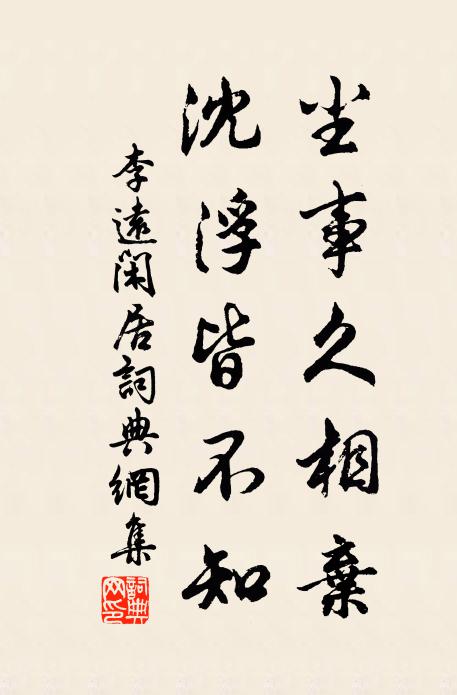 尘事久相棄
沈浮皆不知
李遠閑居詞典網集
詞典网印